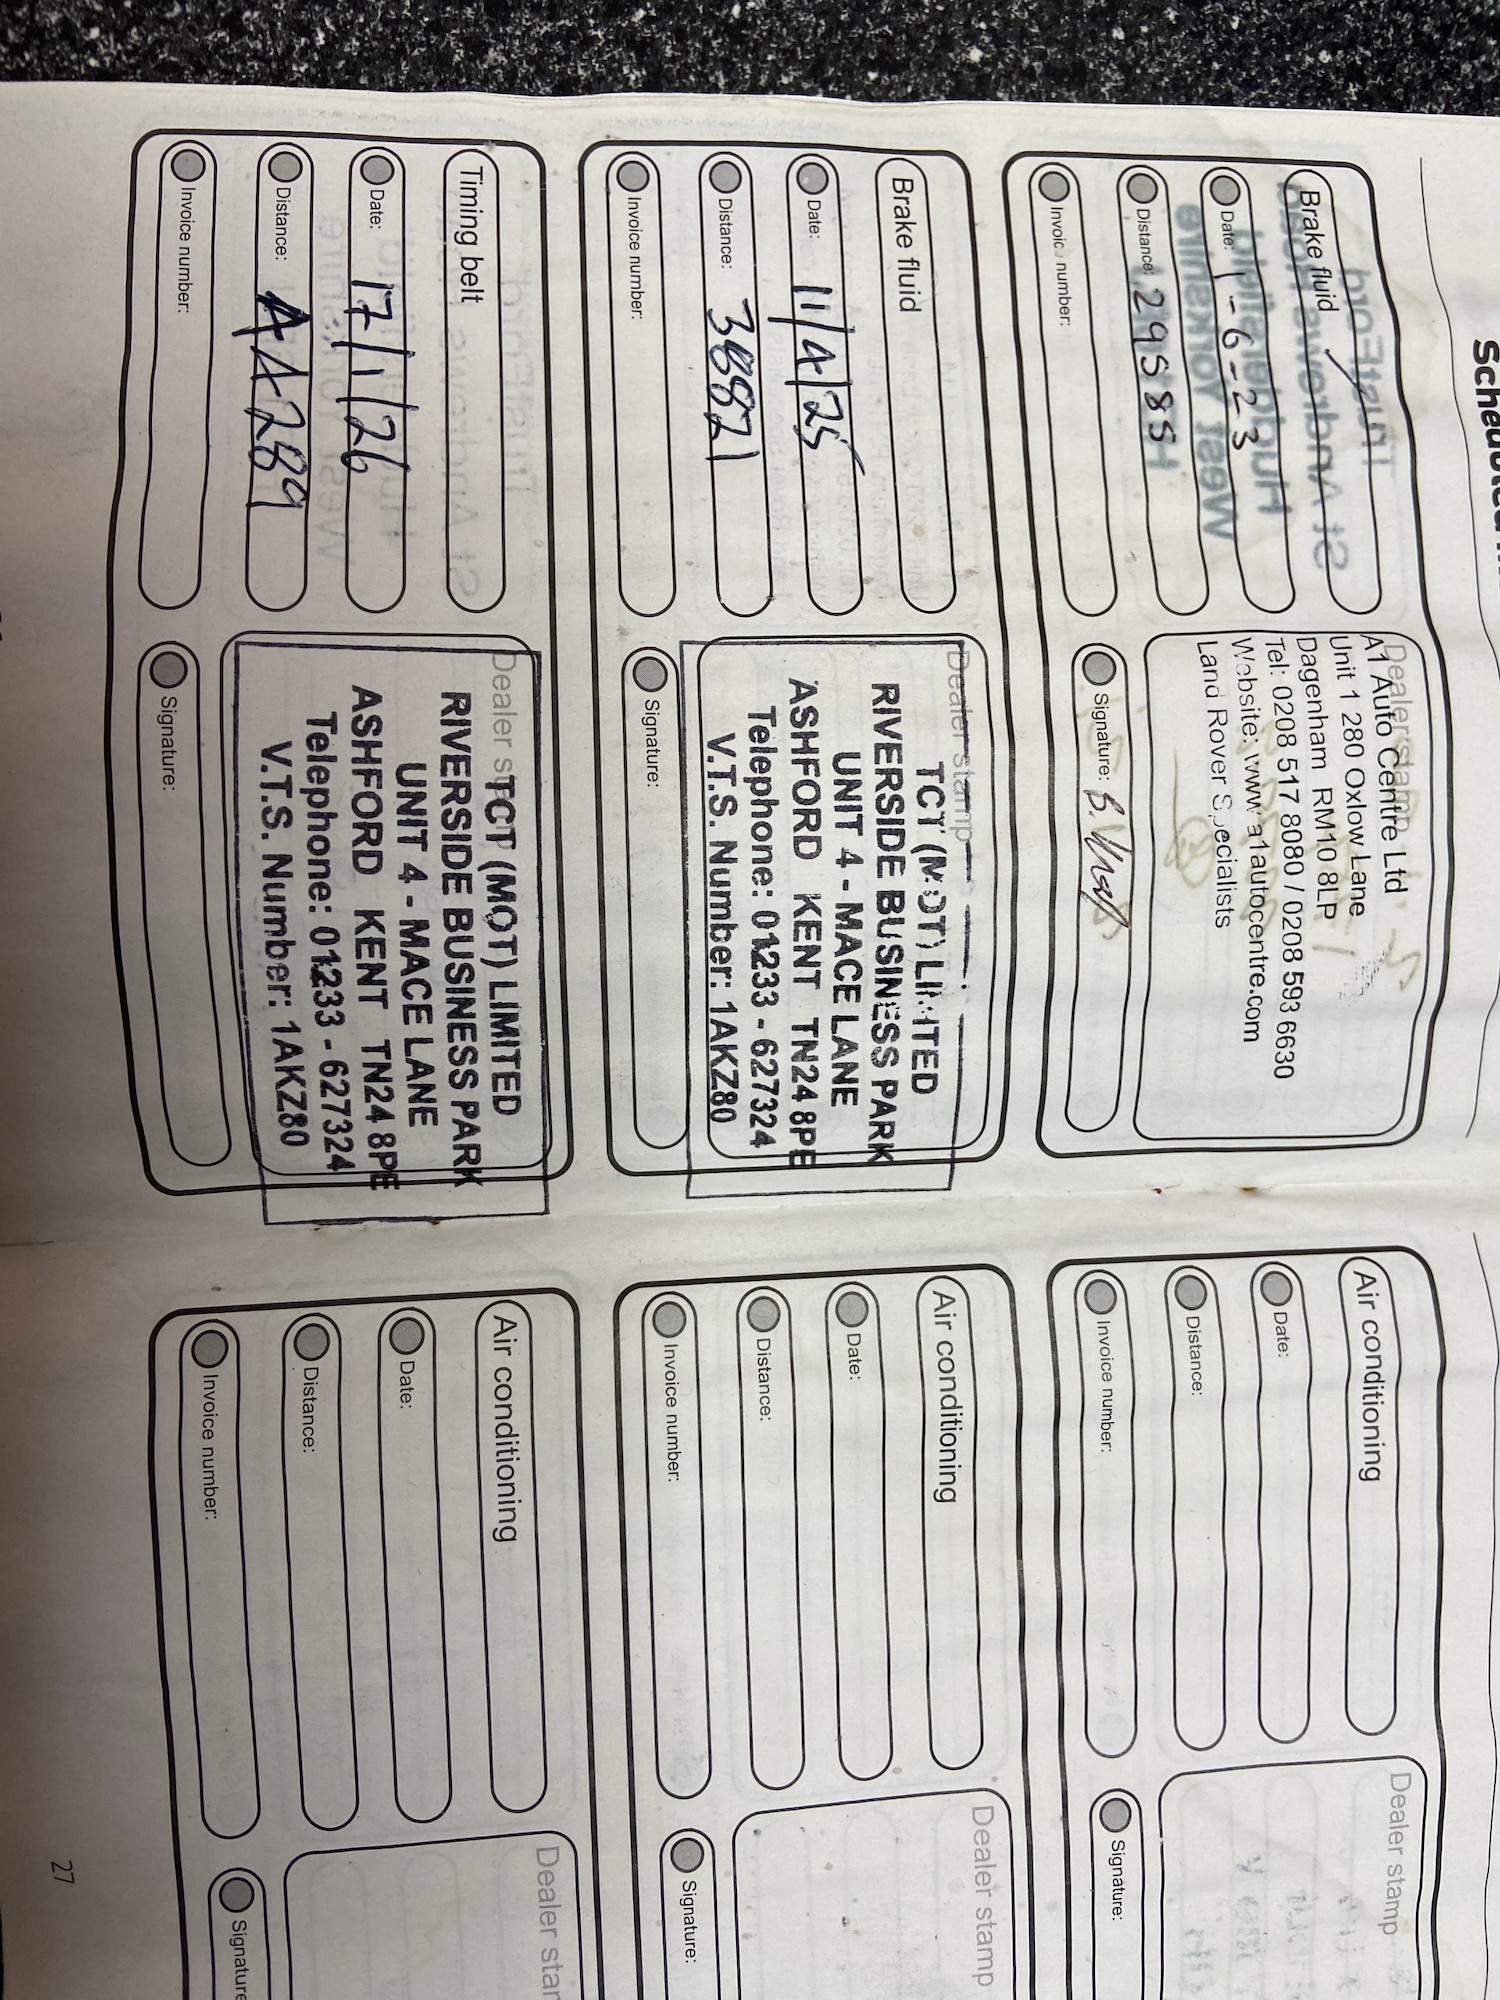 Brake fluid
Date: 1-6-23
Distance: 29585
Invoic number:
Dealer stamp
A1 Auto Centre Ltd
Unit 1 280 Oxlow Lane
Dagenham RM10 8LP
Tel: 0208 517 8080 / 0208 593 6630
Website: www.a1autocentre.com
Land Rover Specialists
Signature:
Brake fluid
Date: 11/4/25
Distance: 38821
Invoice number:
Dealer stamp
TCT (MOT) LIMITED
RIVERSIDE BUSINESS PARK
UNIT 4 - MACE LANE
ASHFORD KENT TN24 8PE
Telephone: 01233 - 627324
V.T.S. Number: 1AKZ80
Signature:
Timing belt
Date: 17/1/26
Distance: 44289
Invoice number:
Dealer stamp
TCT (MOT) LIMITED
RIVERSIDE BUSINESS PARK
UNIT 4 - MACE LANE
ASHFORD KENT TN24 8PE
Telephone: 01233 - 627324
V.T.S. Number: 1AKZ80
Signature:
Air conditioning
Date:
Distance:
Invoice number:
Dealer stamp
Signature:
Air conditioning
Date:
Distance:
Invoice number:
Dealer stamp
Signature:
Air conditioning
Date:
Distance:
Invoice number:
Dealer star
Signature
27